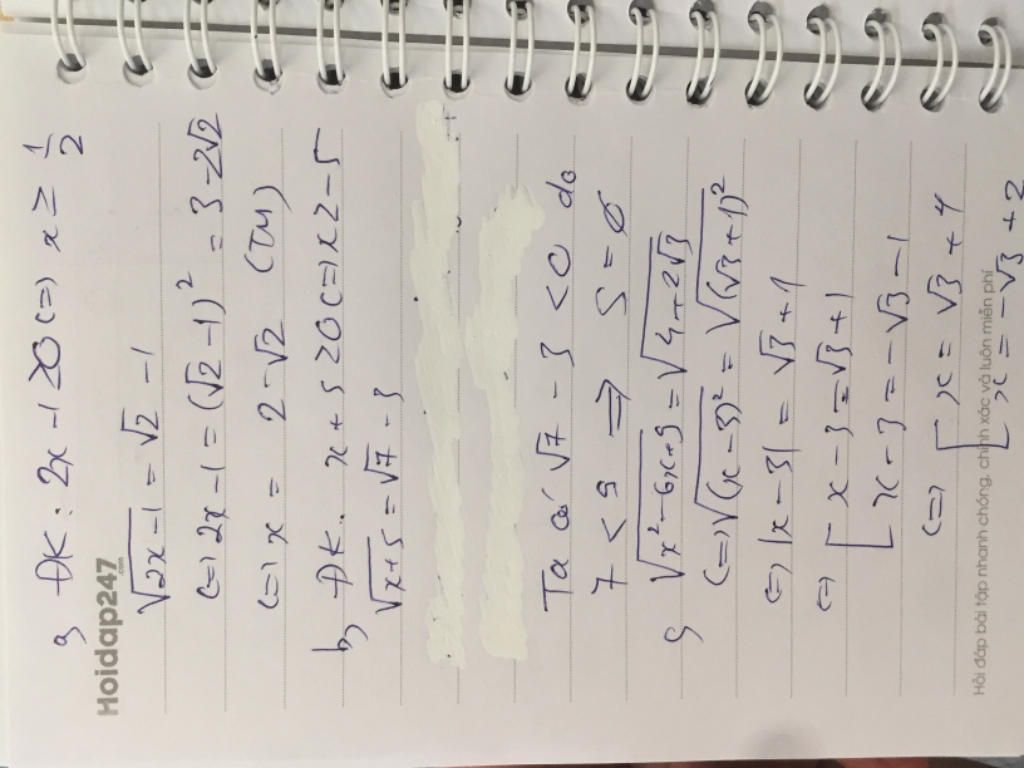 a, ĐK: 2x - 1 ≥ 0 (=) x ≥ 1/2
Hoidap247
.com
√(2x - 1) = √2 - 1
(=) 2x - 1 = (√2 - 1)² = 3 - 2√2
(=) x = 2 - √2 (TM)
b, ĐK: x + 5 ≥ 0 (=) x ≥ -5
√(x + 5) = √7 - 3
Ta có √7 - 3 < 0 do
7 < 9 => S = ∅
c, √(x² - 6x + 9) = √(4 + 2√3)
(=) √((x - 3)²) = √((√3 + 1)²)
(=) |x - 3| = √3 + 1
(=) [ x - 3 = √3 + 1
[ x - 3 = -√3 - 1
(=) [ x = √3 + 4
[ x = -√3 + 2
Hỏi đáp bài tập nhanh chóng, chính xác và luôn miễn phí